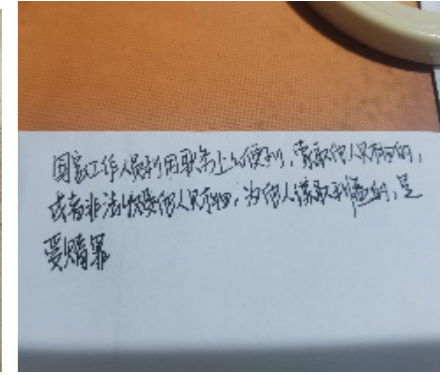 国家工作人员利用职务上的便利，索取他人财物的，
或者非法收受他人财物，为他人谋取利益的，是
受贿罪